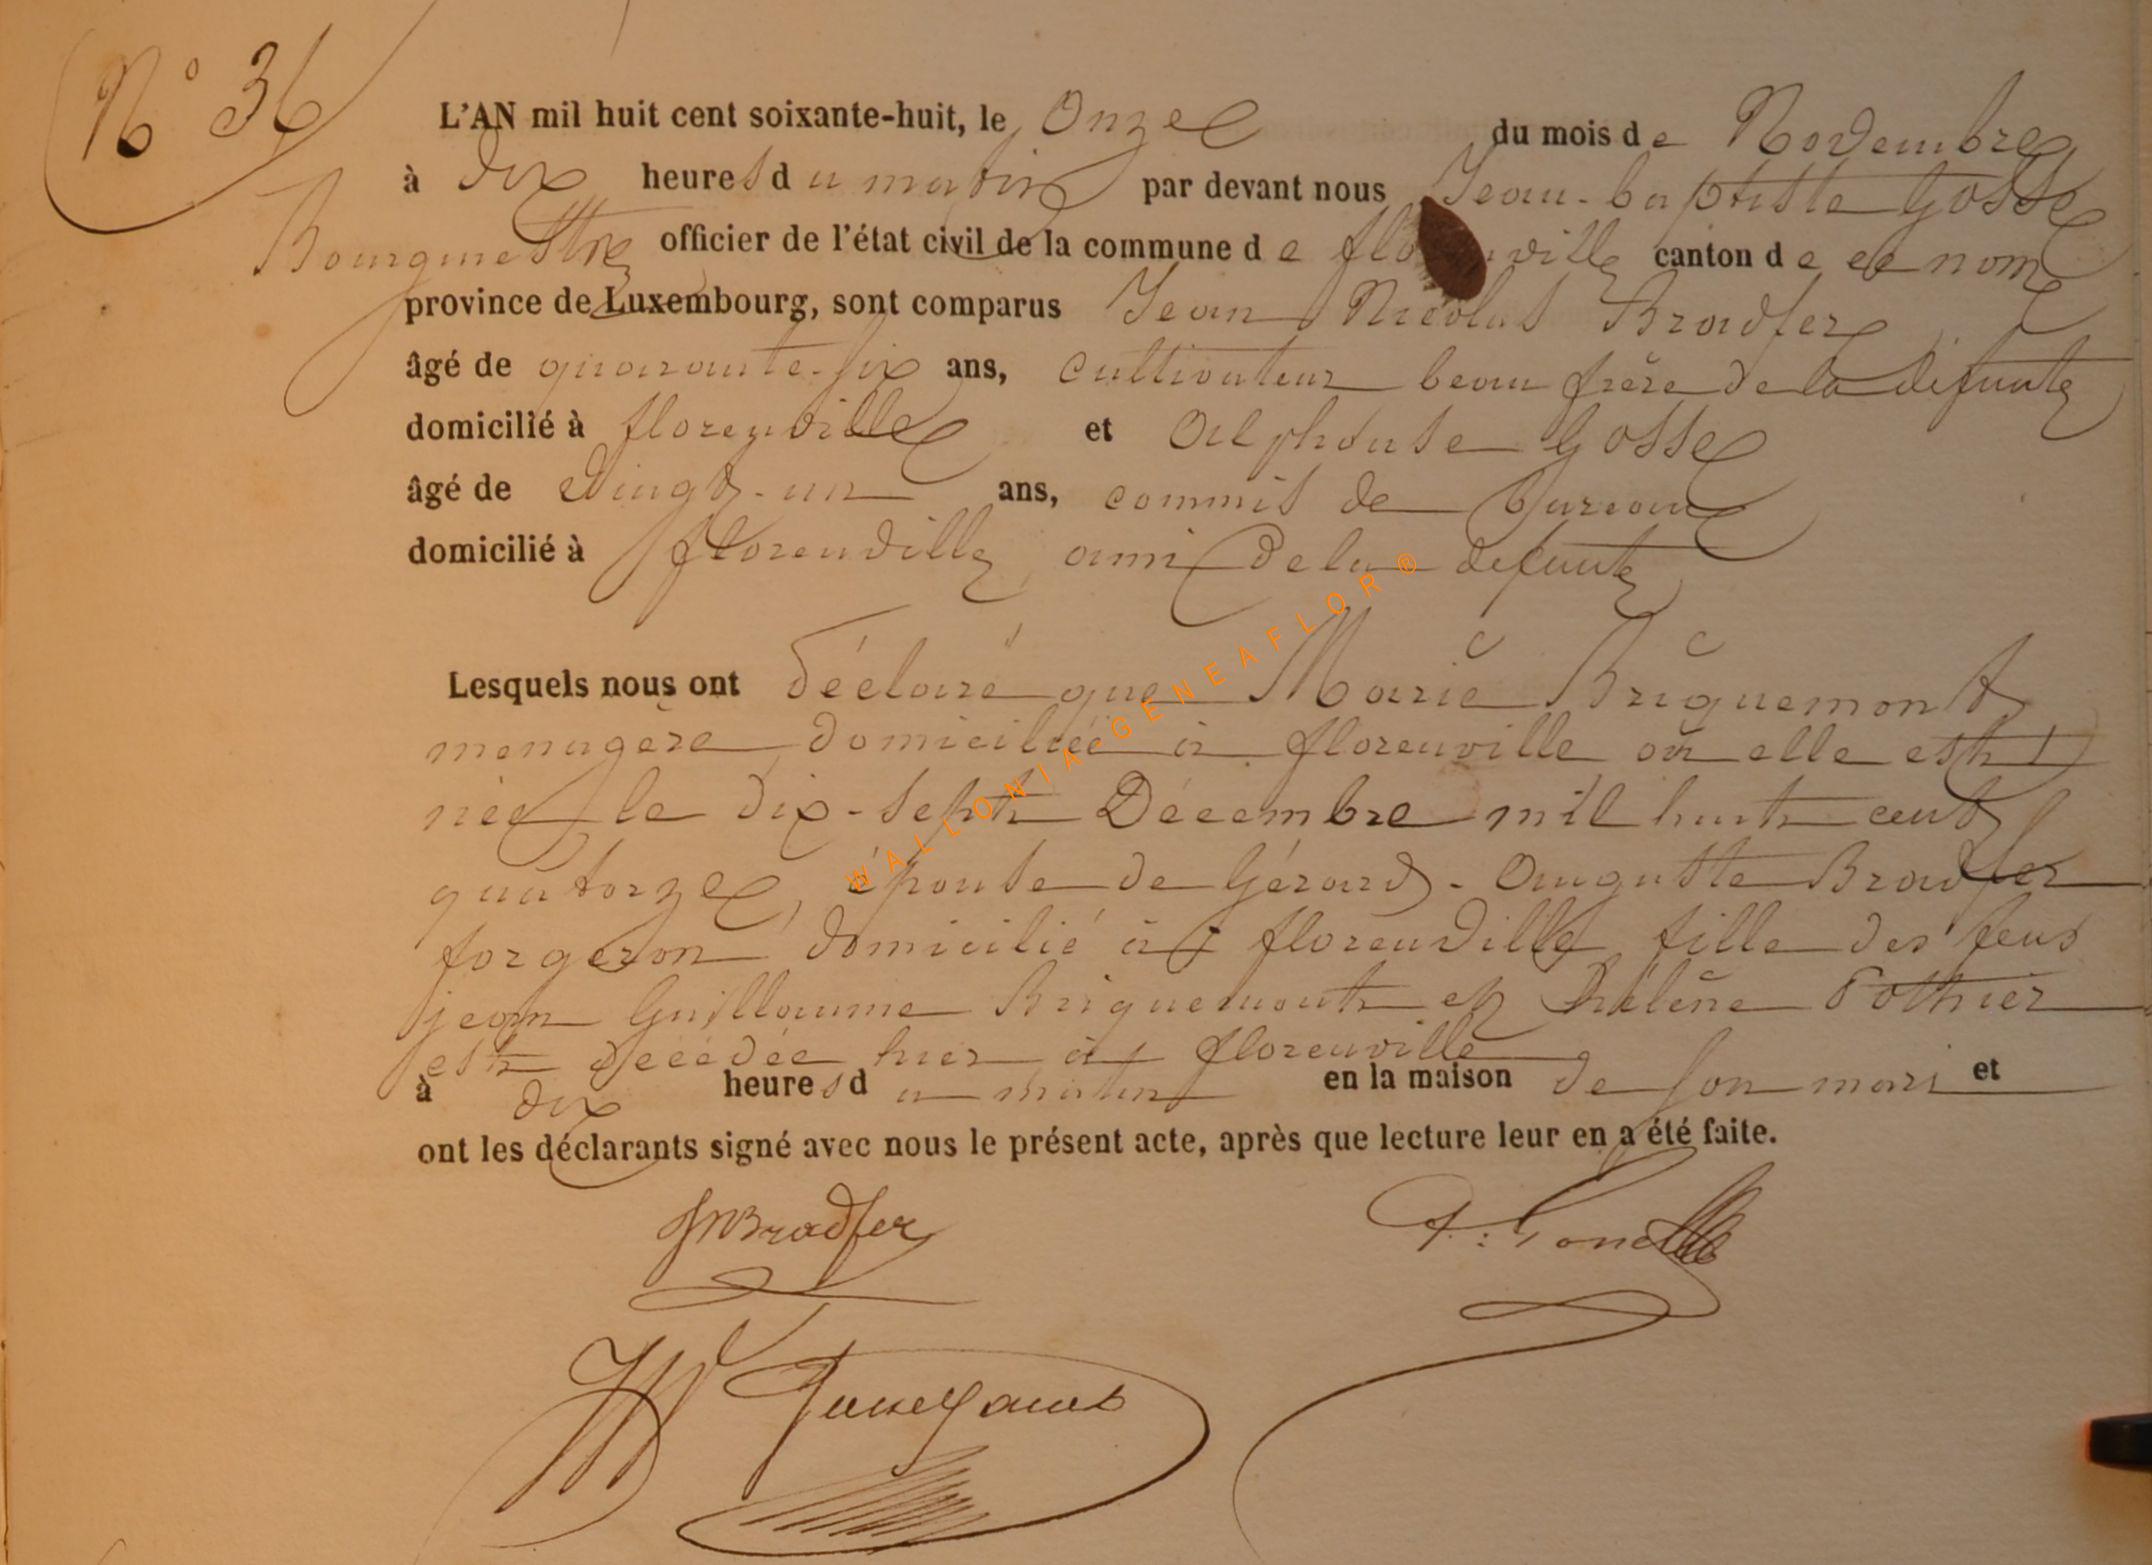 N° 36
L'AN mil huit cent soixante-huit, le Onze du mois de Novembre
à dix heures du matin par devant nous Jean-baptiste Gosse
Bourgmestre officier de l'état civil de la commune de florenville canton de ce nom
province de Luxembourg, sont comparus Jean Nicolas Bradfer
âgé de quarante-six ans, cultivateur beau frère de la défunte
domicilié à florenville et Alphonse Gosse
âgé de vingt-un ans, commis de bureau
domicilié à florenville ami de la defunte
Lesquels nous ont déclaré que Marie Briquemont
menagère domiciliée à florenville où elle est
née le dix-sept Décembre mil huit cent
quatorze, épouse de Gérard-Auguste Bradfer
forgeron domicilié à florenville fille des feus
jean Guillaume Briquemont et Hélène Pothier
est décédée hier à florenville
à dix heures du matin en la maison de son mari et
ont les déclarants signé avec nous le présent acte, après que lecture leur en a été faite.
JNBradfer
WALLONIA-GENEAFLOR®